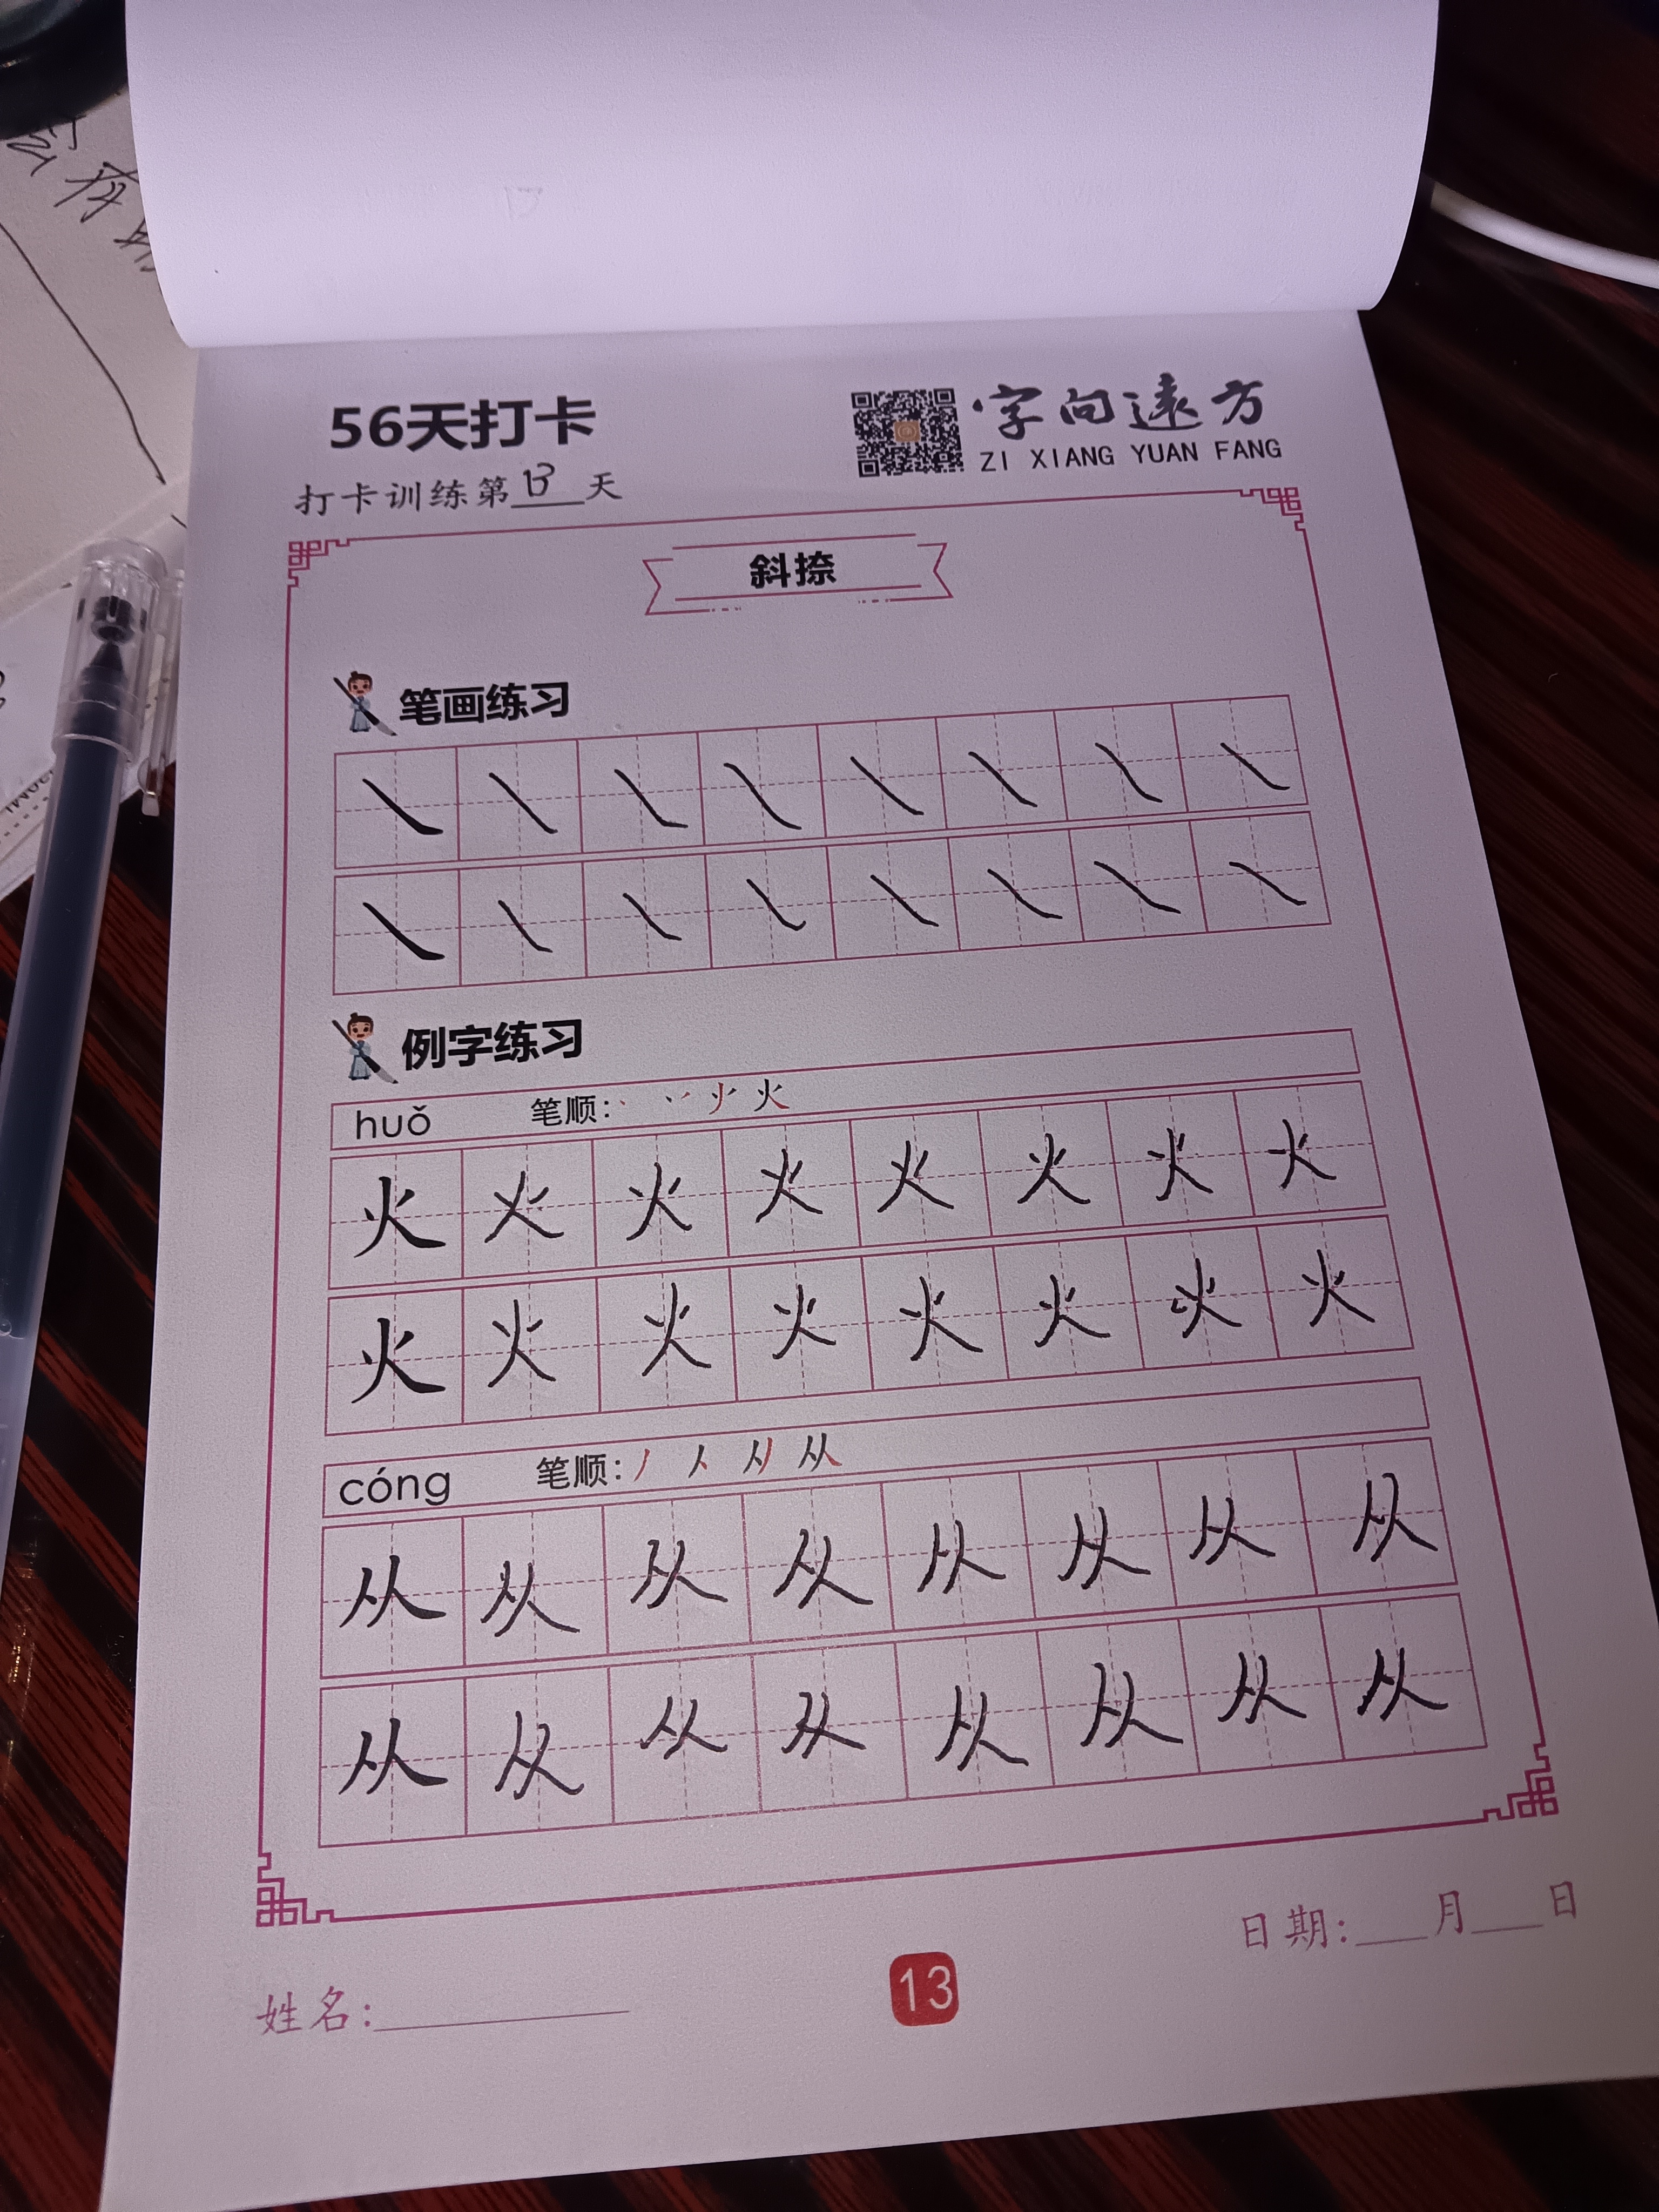 56天打卡
字向遠方
ZI XIANG YUAN FANG
打卡训练第13天
斜捺
笔画练习
㇏ ㇏ ㇏ ㇏ ㇏ ㇏ ㇏ ㇏
㇏ ㇏ ㇏ ㇏ ㇏ ㇏ ㇏ ㇏
例字练习
huǒ 笔顺: 火
火 火 火 火 火 火 火 火
火 火 火 火 火 火 火 火
cóng 笔顺: 丿 人 从
从 从 从 从 从 从 从 从
从 从 从 从 从 从 从 从
日期:___月___日
姓名:
13